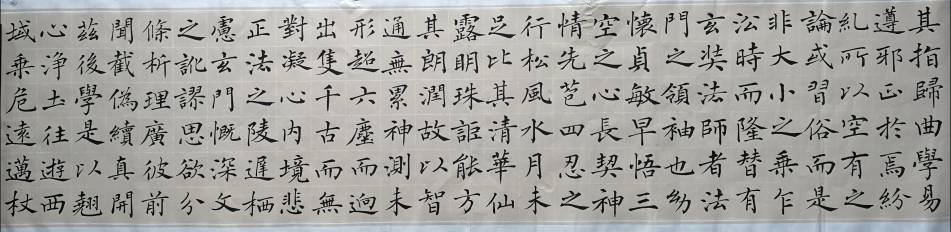 其指歸曲學易
遵邪正於焉紛
糺所以空有之
論或習俗而是
非大小之乘乍
沿時而隆替有
玄奘法師者法
門之領袖也幼
懷貞敏早悟三
空之心長契神
情先苞四忍之
行松風水月未
足比其清華仙
露明珠詎能方
其朗潤故以智
通無累神測未
形超六塵而迥
出隻千古而無
對凝心內境悲
正法之陵遲栖
慮玄門慨深文
之訛謬思欲分
條析理廣彼前
聞截偽續真開
茲後學是以翹
心淨土往遊西
域乘危遠邁杖